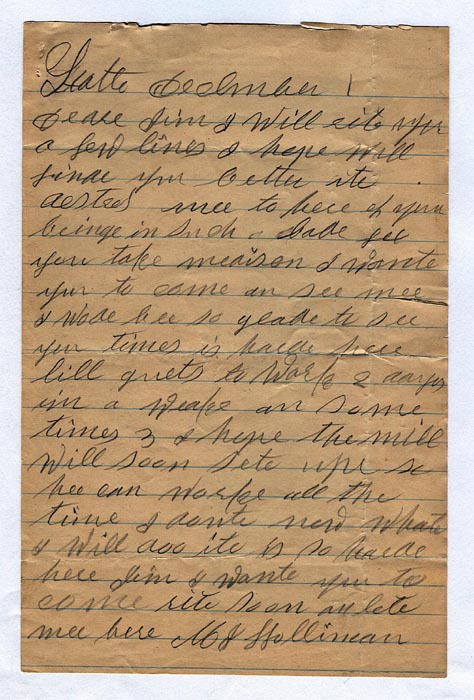 December 1
deare Jim I Will rite you
a few lines I hope Will
finde you better ite
mee to heer of you
beinge in Such a
you take I wante
you to come an see mee
I Wode bee so glade to see
you times is harde heer
bill guets to Worke 2 days
in a Weake an some
times 3 I hope the mill
Will soon so
hee can Worke all the
time I donte now What
I Will doo ite is so harde
here Jim I Wante you to
come rite soon an lete
mee here M J Holliman